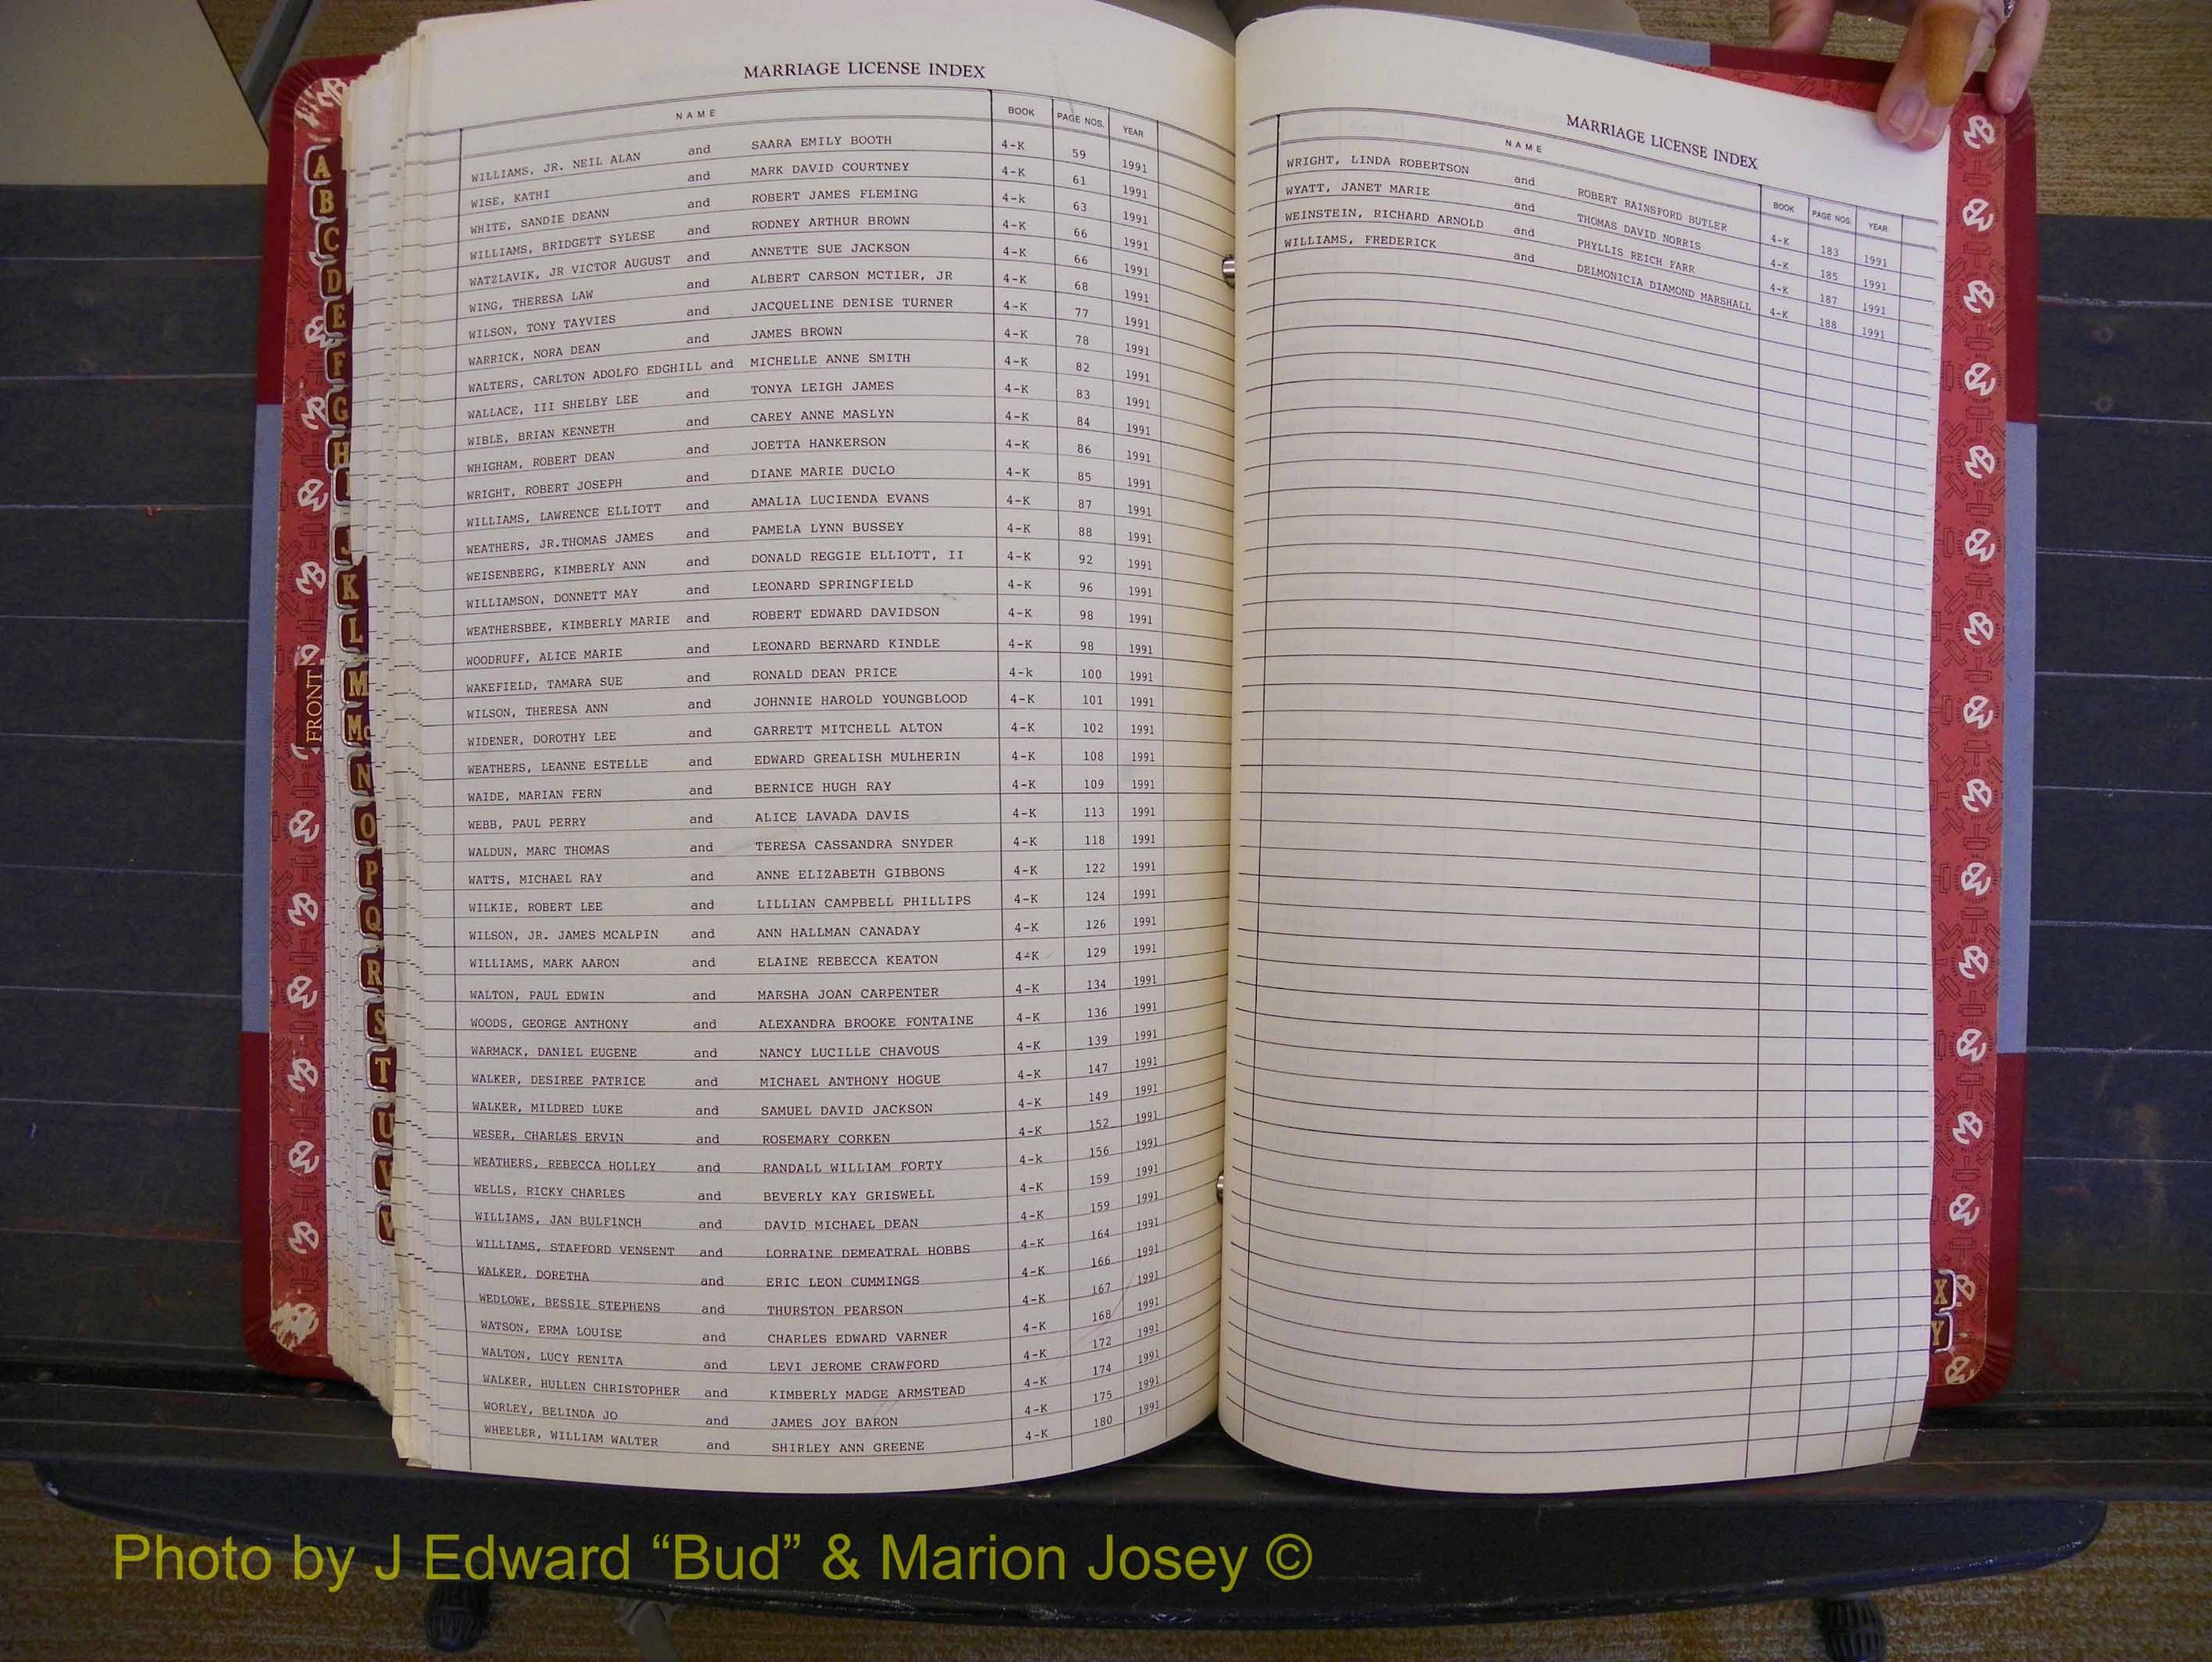 MARRIAGE LICENSE INDEX
NAME BOOK PAGE NOS. YEAR
WILLIAMS, JR. NEIL ALAN and SAARA EMILY BOOTH 4-K 59 1991
WISE, KATHI and MARK DAVID COURTNEY 4-K 61 1991
WHITE, SANDIE DEANN and ROBERT JAMES FLEMING 4-k 63 1991
WILLIAMS, BRIDGETT SYLESE and RODNEY ARTHUR BROWN 4-K 66 1991
WATZLAVIK, JR VICTOR AUGUST and ANNETTE SUE JACKSON 4-K 66 1991
WING, THERESA LAW and ALBERT CARSON MCTIER, JR 4-K 68 1991
WILSON, TONY TAYVIES and JACQUELINE DENISE TURNER 4-K 77 1991
WARRICK, NORA DEAN and JAMES BROWN 4-K 78 1991
WALTERS, CARLTON ADOLFO EDGHILL and MICHELLE ANNE SMITH 4-K 82 1991
WALLACE, III SHELBY LEE and TONYA LEIGH JAMES 4-K 83 1991
WIBLE, BRIAN KENNETH and CAREY ANNE MASLYN 4-K 84 1991
WHIGHAM, ROBERT DEAN and JOETTA HANKERSON 4-K 86 1991
WRIGHT, ROBERT JOSEPH and DIANE MARIE DUCLO 4-K 85 1991
WILLIAMS, LAWRENCE ELLIOTT and AMALIA LUCIENDA EVANS 4-K 87 1991
WEATHERS, JR.THOMAS JAMES and PAMELA LYNN BUSSEY 4-K 88 1991
WEISENBERG, KIMBERLY ANN and DONALD REGGIE ELLIOTT, II 4-K 92 1991
WILLIAMSON, DONNETT MAY and LEONARD SPRINGFIELD 4-K 96 1991
WEATHERSBEE, KIMBERLY MARIE and ROBERT EDWARD DAVIDSON 4-K 98 1991
WOODRUFF, ALICE MARIE and LEONARD BERNARD KINDLE 4-K 98 1991
WAKEFIELD, TAMARA SUE and RONALD DEAN PRICE 4-k 100 1991
WILSON, THERESA ANN and JOHNNIE HAROLD YOUNGBLOOD 4-K 101 1991
WIDENER, DOROTHY LEE and GARRETT MITCHELL ALTON 4-K 102 1991
WEATHERS, LEANNE ESTELLE and EDWARD GREALISH MULHERIN 4-K 108 1991
WAIDE, MARIAN FERN and BERNICE HUGH RAY 4-K 109 1991
WEBB, PAUL PERRY and ALICE LAVADA DAVIS 4-K 113 1991
WALDUN, MARC THOMAS and TERESA CASSANDRA SNYDER 4-K 118 1991
WATTS, MICHAEL RAY and ANNE ELIZABETH GIBBONS 4-K 122 1991
WILKIE, ROBERT LEE and LILLIAN CAMPBELL PHILLIPS 4-K 124 1991
WILSON, JR. JAMES MCALPIN and ANN HALLMAN CANADAY 4-K 126 1991
WILLIAMS, MARK AARON and ELAINE REBECCA KEATON 4-K 129 1991
WALTON, PAUL EDWIN and MARSHA JOAN CARPENTER 4-K 134 1991
WOODS, GEORGE ANTHONY and ALEXANDRA BROOKE FONTAINE 4-K 136 1991
WARMACK, DANIEL EUGENE and NANCY LUCILLE CHAVOUS 4-K 139 1991
WALKER, DESIREE PATRICE and MICHAEL ANTHONY HOGUE 4-K 147 1991
WALKER, MILDRED LUKE and SAMUEL DAVID JACKSON 4-K 149 1991
WESER, CHARLES ERVIN and ROSEMARY CORKEN 4-K 152 1991
WEATHERS, REBECCA HOLLEY and RANDALL WILLIAM FORTY 4-k 156 1991
WELLS, RICKY CHARLES and BEVERLY KAY GRISWELL 4-K 159 1991
WILLIAMS, JAN BULFINCH and DAVID MICHAEL DEAN 4-K 159 1991
WILLIAMS, STAFFORD VENSENT and LORRAINE DEMEATRAL HOBBS 4-K 164 1991
WALKER, DORETHA and ERIC LEON CUMMINGS 4-K 166 1991
WEDLOWE, BESSIE STEPHENS and THURSTON PEARSON 4-K 167 1991
WATSON, ERMA LOUISE and CHARLES EDWARD VARNER 4-K 168 1991
WALTON, LUCY RENITA and LEVI JEROME CRAWFORD 4-K 172 1991
WALKER, HULLEN CHRISTOPHER and KIMBERLY MADGE ARMSTEAD 4-K 174 1991
WORLEY, BELINDA JO and JAMES JOY BARON 4-K 175 1991
WHEELER, WILLIAM WALTER and SHIRLEY ANN GREENE 4-K 180 1991
MARRIAGE LICENSE INDEX
NAME BOOK PAGE NOS. YEAR
WRIGHT, LINDA ROBERTSON and ROBERT RAINSFORD BUTLER 4-K 183 1991
WYATT, JANET MARIE and THOMAS DAVID NORRIS 4-K 185 1991
WEINSTEIN, RICHARD ARNOLD and PHYLLIS REICH FARR 4-K 187 1991
WILLIAMS, FREDERICK and DELMONICIA DIAMOND MARSHALL 4-K 188 1991
A
B
C
D
E
F
G
H
J
K
L
M
Mc
N
O
P
Q
R
S
T
U
V
X
Y
FRONT
Photo by J Edward “Bud” & Marion Josey ©